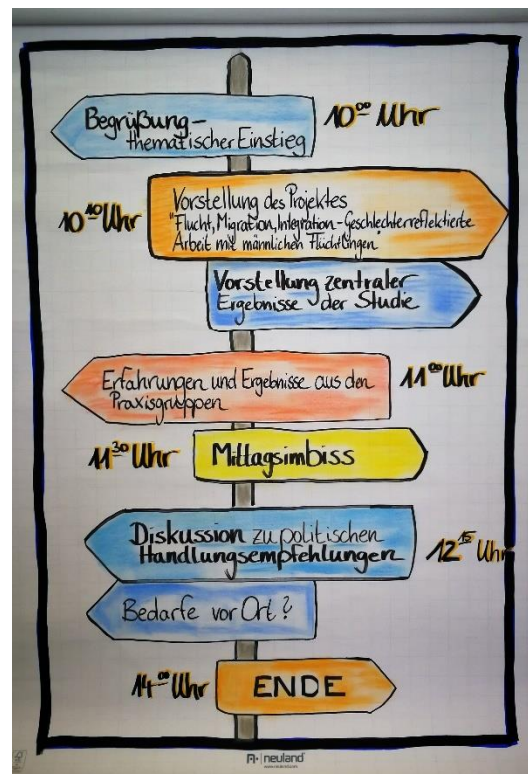 Begrüßung-
thematischer Einstieg
10⁰⁰ Uhr
10¹⁰ Uhr
Vorstellung des Projektes
"Flucht, Migration, Integration-Geschlechterreflektierte
Arbeit mit männlichen Flüchtlingen"
Vorstellung zentraler
Ergebnisse der Studie
Erfahrungen und Ergebnisse aus den
Praxisgruppen
11⁰⁰ Uhr
11³⁰ Uhr
Mittagsimbiss
Diskussion zu politischen
Handlungsempfehlungen
12¹⁵ Uhr
Bedarfe vor Ort?
14⁰⁰ Uhr
ENDE
neuland